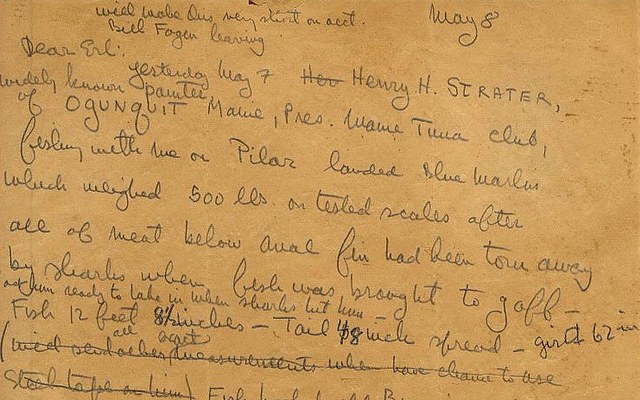 will make this very short on acct.
Bill Fagen leaving
May 8
Dear Erl:
yesterday May 7 Her Henry H. STRATER,
widely known painter,
of OGUNQUIT Maine, Pres. Maine Tuna Club,
fishing with me on Pilar landed Blue Marlin
which weighed 500 lbs. on tested scales after
all of meat below anal fin had been torn away
by sharks when fish was brought to gaff —
had him ready to take in when sharks hit him —
Fish 12 feet 8½ inches — Tail 48 inch spread — girth 62 in
all exact
(will send measurements when have chance to use
Steel tape on him) Fish